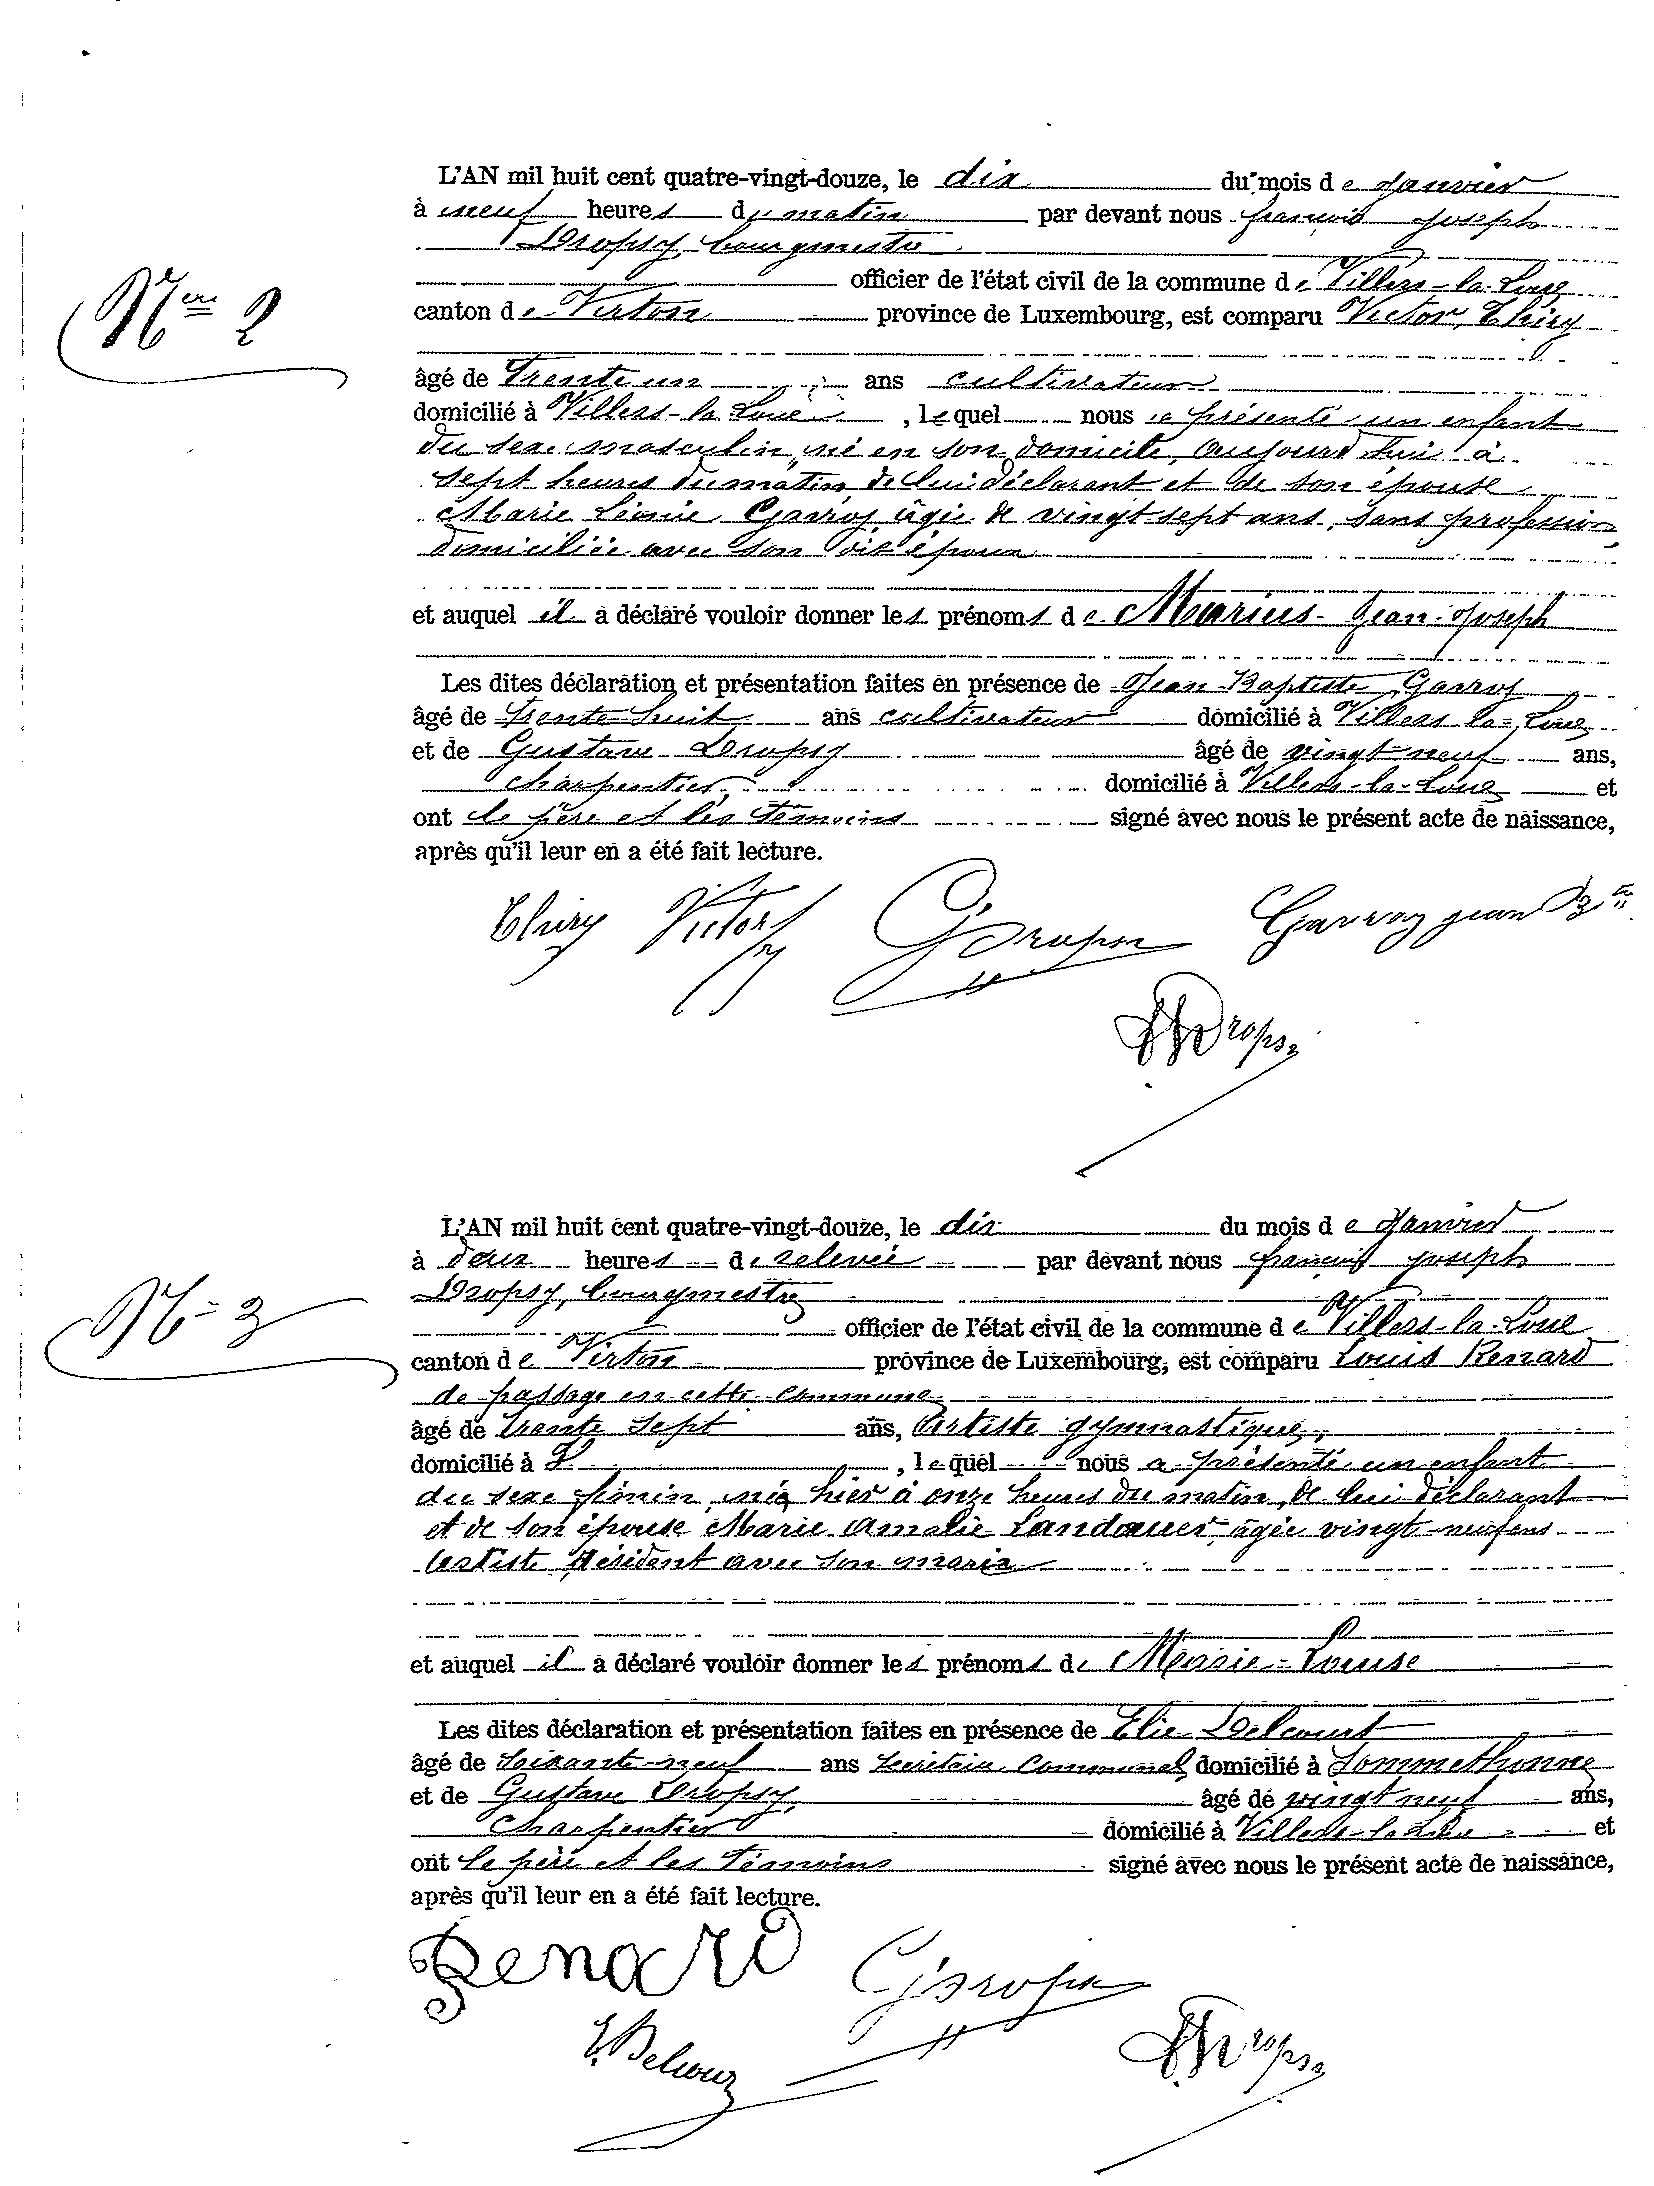 L'AN mil huit cent quatre-vingt-douze, le dix du mois de Janvier
à neuf heures du matin par devant nous françois joseph
Dropsy, bourgmestre
Nro 2
officier de l'état civil de la commune de Villers-la-Loue
canton de Virton province de Luxembourg, est comparu Victor Thiry
âgé de Trente un ans cultivateur
domicilié à Villers-la Loue, lequel nous a présenté un enfant
du sexe masculin, né en son domicile, aujourd'hui à
sept heures du matin, de lui déclarant et de son épouse
Marie Léonie Gavroy âgée de vingt sept ans, sans profession
domiciliée avec son dit époux
et auquel il a déclaré vouloir donner les prénoms de Marius-Jean-Joseph
Les dites déclaration et présentation faites en présence de Jean Baptiste Gavroy
âgé de trente huit ans cultivateur domicilié à Villers la-Loue
et de Gustave Dropsy âgé de vingt neuf ans,
charpentier, domicilié à Villers-la-Loue et
ont le père et les témoins signé avec nous le présent acte de naissance,
après qu'il leur en a été fait lecture.
Thiry Victor G Dropsy Gavroy jean Bte
Dropsy
L'AN mil huit cent quatre-vingt-douze, le dix du mois de Janvier
à deux heures de relevée par devant nous françois joseph
Dropsy, bourgmestre
N° 3
officier de l'état civil de la commune de Villers-la-Loue
canton de Virton province de Luxembourg, est comparu Louis Renard
de passage en cette commune
âgé de trente sept ans, Artiste gymnastique,
domicilié à , lequel nous a présenté un enfant
du sexe féminin, née hier à onze heures du matin, de lui déclarant
et de son épouse Marie Amalie Landauer âgée vingt-neuf ans
Artiste résident avec son mari
et auquel il a déclaré vouloir donner les prénoms de Marie-Louise
Les dites déclaration et présentation faites en présence de Elie Delcourt
âgé de soixante-neuf ans secrétaire communal, domicilié à Sommethonne
et de Gustave Dropsy, âgé de vingt neuf ans,
Charpentier domicilié à Villers-la-Loue et
ont le père et les témoins signé avec nous le présent acte de naissance,
après qu'il leur en a été fait lecture.
Renard G Dropsy
E. Delcour Dropsy